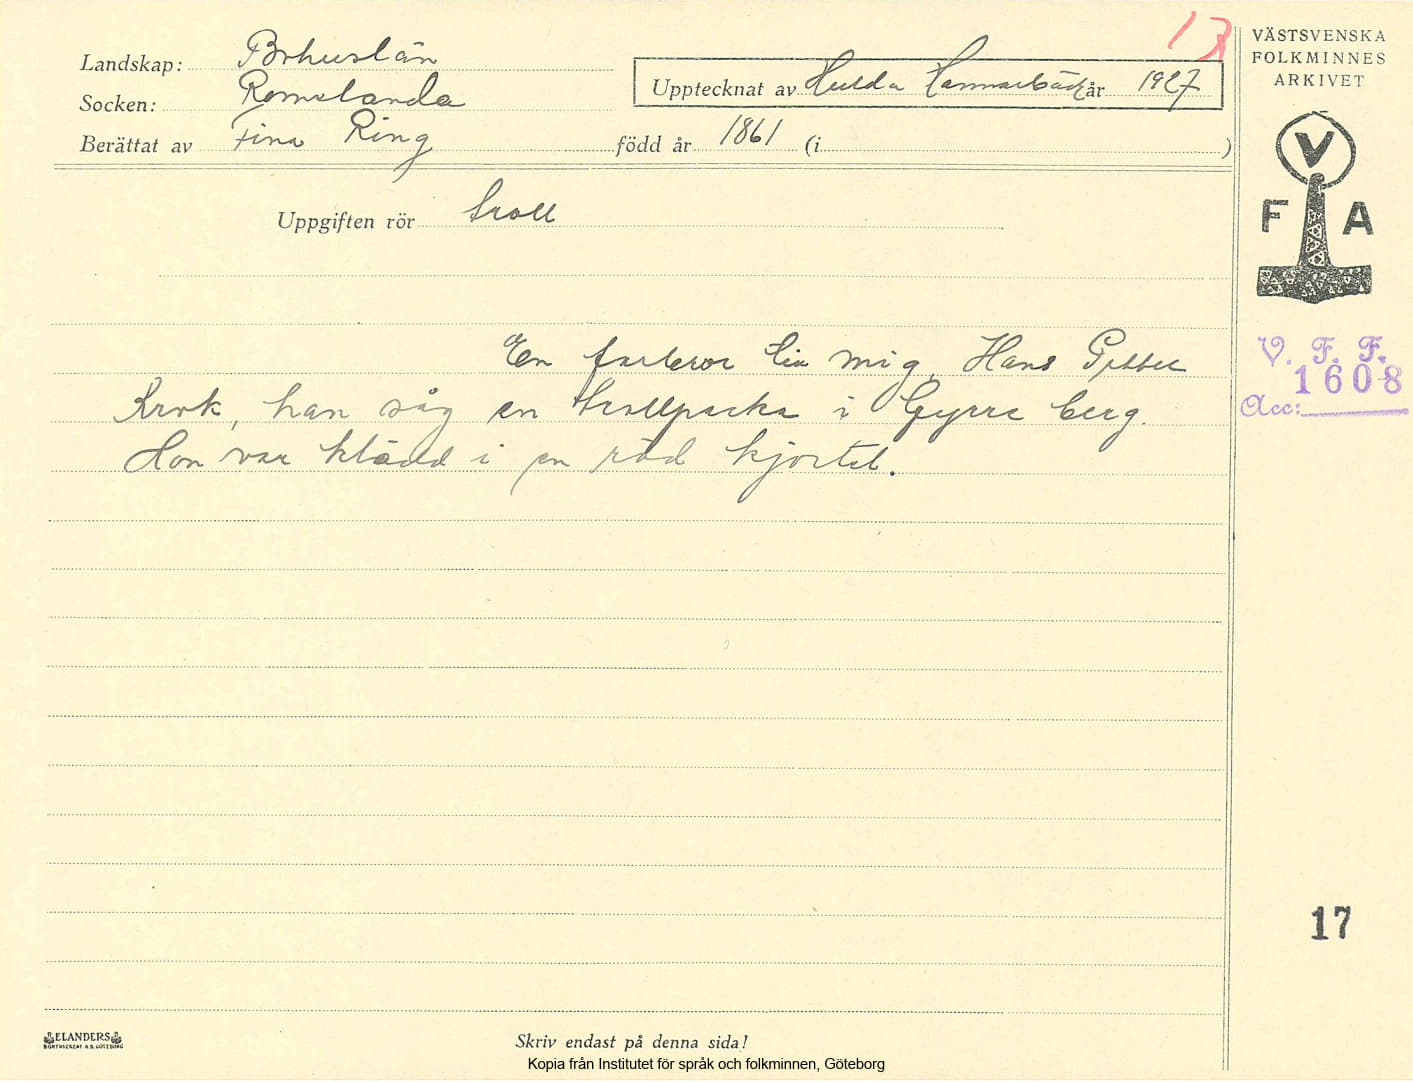 13
VÄSTSVENSKA
FOLKMINNES
ARKIVET
Landskap: Bohuslän
Upptecknat av Hulda Hammarbäck år 1927
Socken: Romelanda
Berättat av Fina Ring född år 1861 (i )
V
F A
Uppgiften rör troll
En farbror till mig, Hans Petter
Krok, han såg en trollpacka i berg.
Hon var klädd i en röd kjortel.
V. F. F.
1608
Acc:
17
ELANDERS
BOKTRYCKERI A.B. GÖTEBORG
Skriv endast på denna sida!
Kopia från Institutet för språk och folkminnen, Göteborg